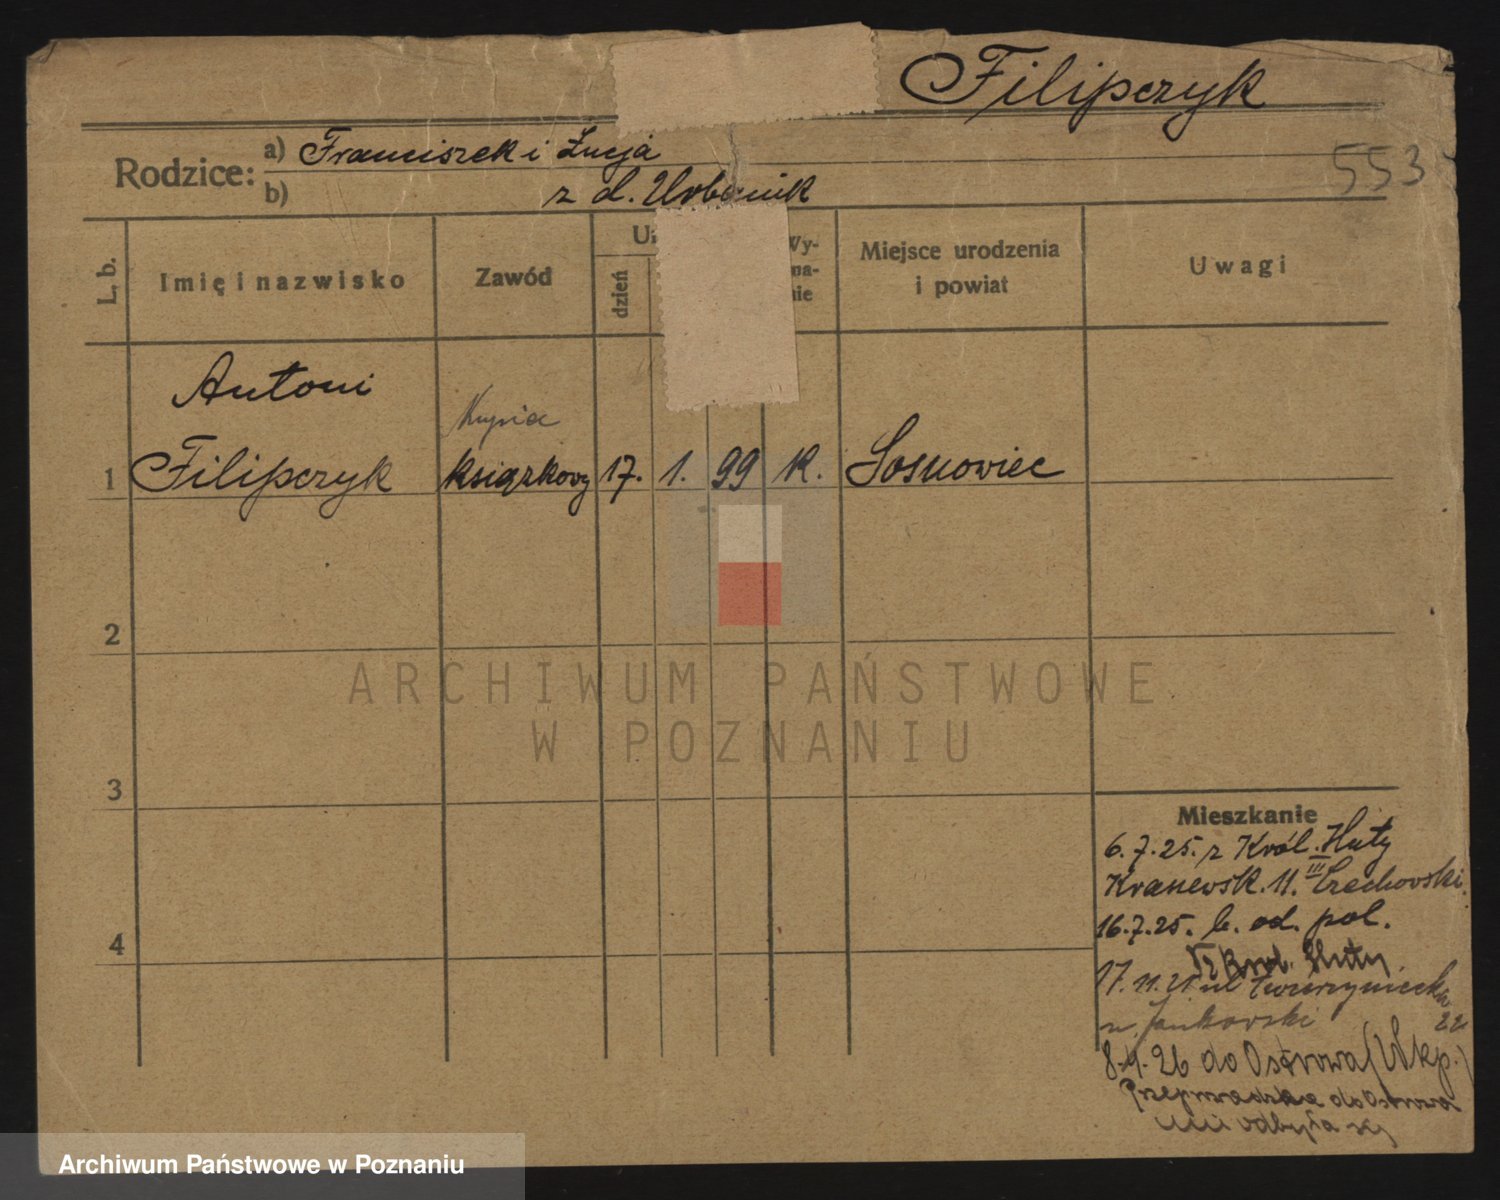 Filipczyk
553
Rodzice: a) Franciszek i Łucja
b) z d. Urbanik
L. b. Imię i nazwisko Zawód U dzień Wy- na- nie Miejsce urodzenia i powiat Uwagi
Antoni
1 Filipczyk książkowy 17. 1. 99 K. Sosnowiec
2
3
4
ARCHIWUM PAŃSTWOWE
W POZNANIU
Mieszkanie
6.7.25. z Król. Huty
Kranewsk. 11. III Czechowski
16.7.25. b. od. pol.
Król. Huty
17.11.25 ul Zwierzyniecka
22
n. Jankowski
8.4.26 do Ostrowa (Wkp.)
Przeprowadzka do Ostrowa
nie odbyła się
Archiwum Państwowe w Poznaniu